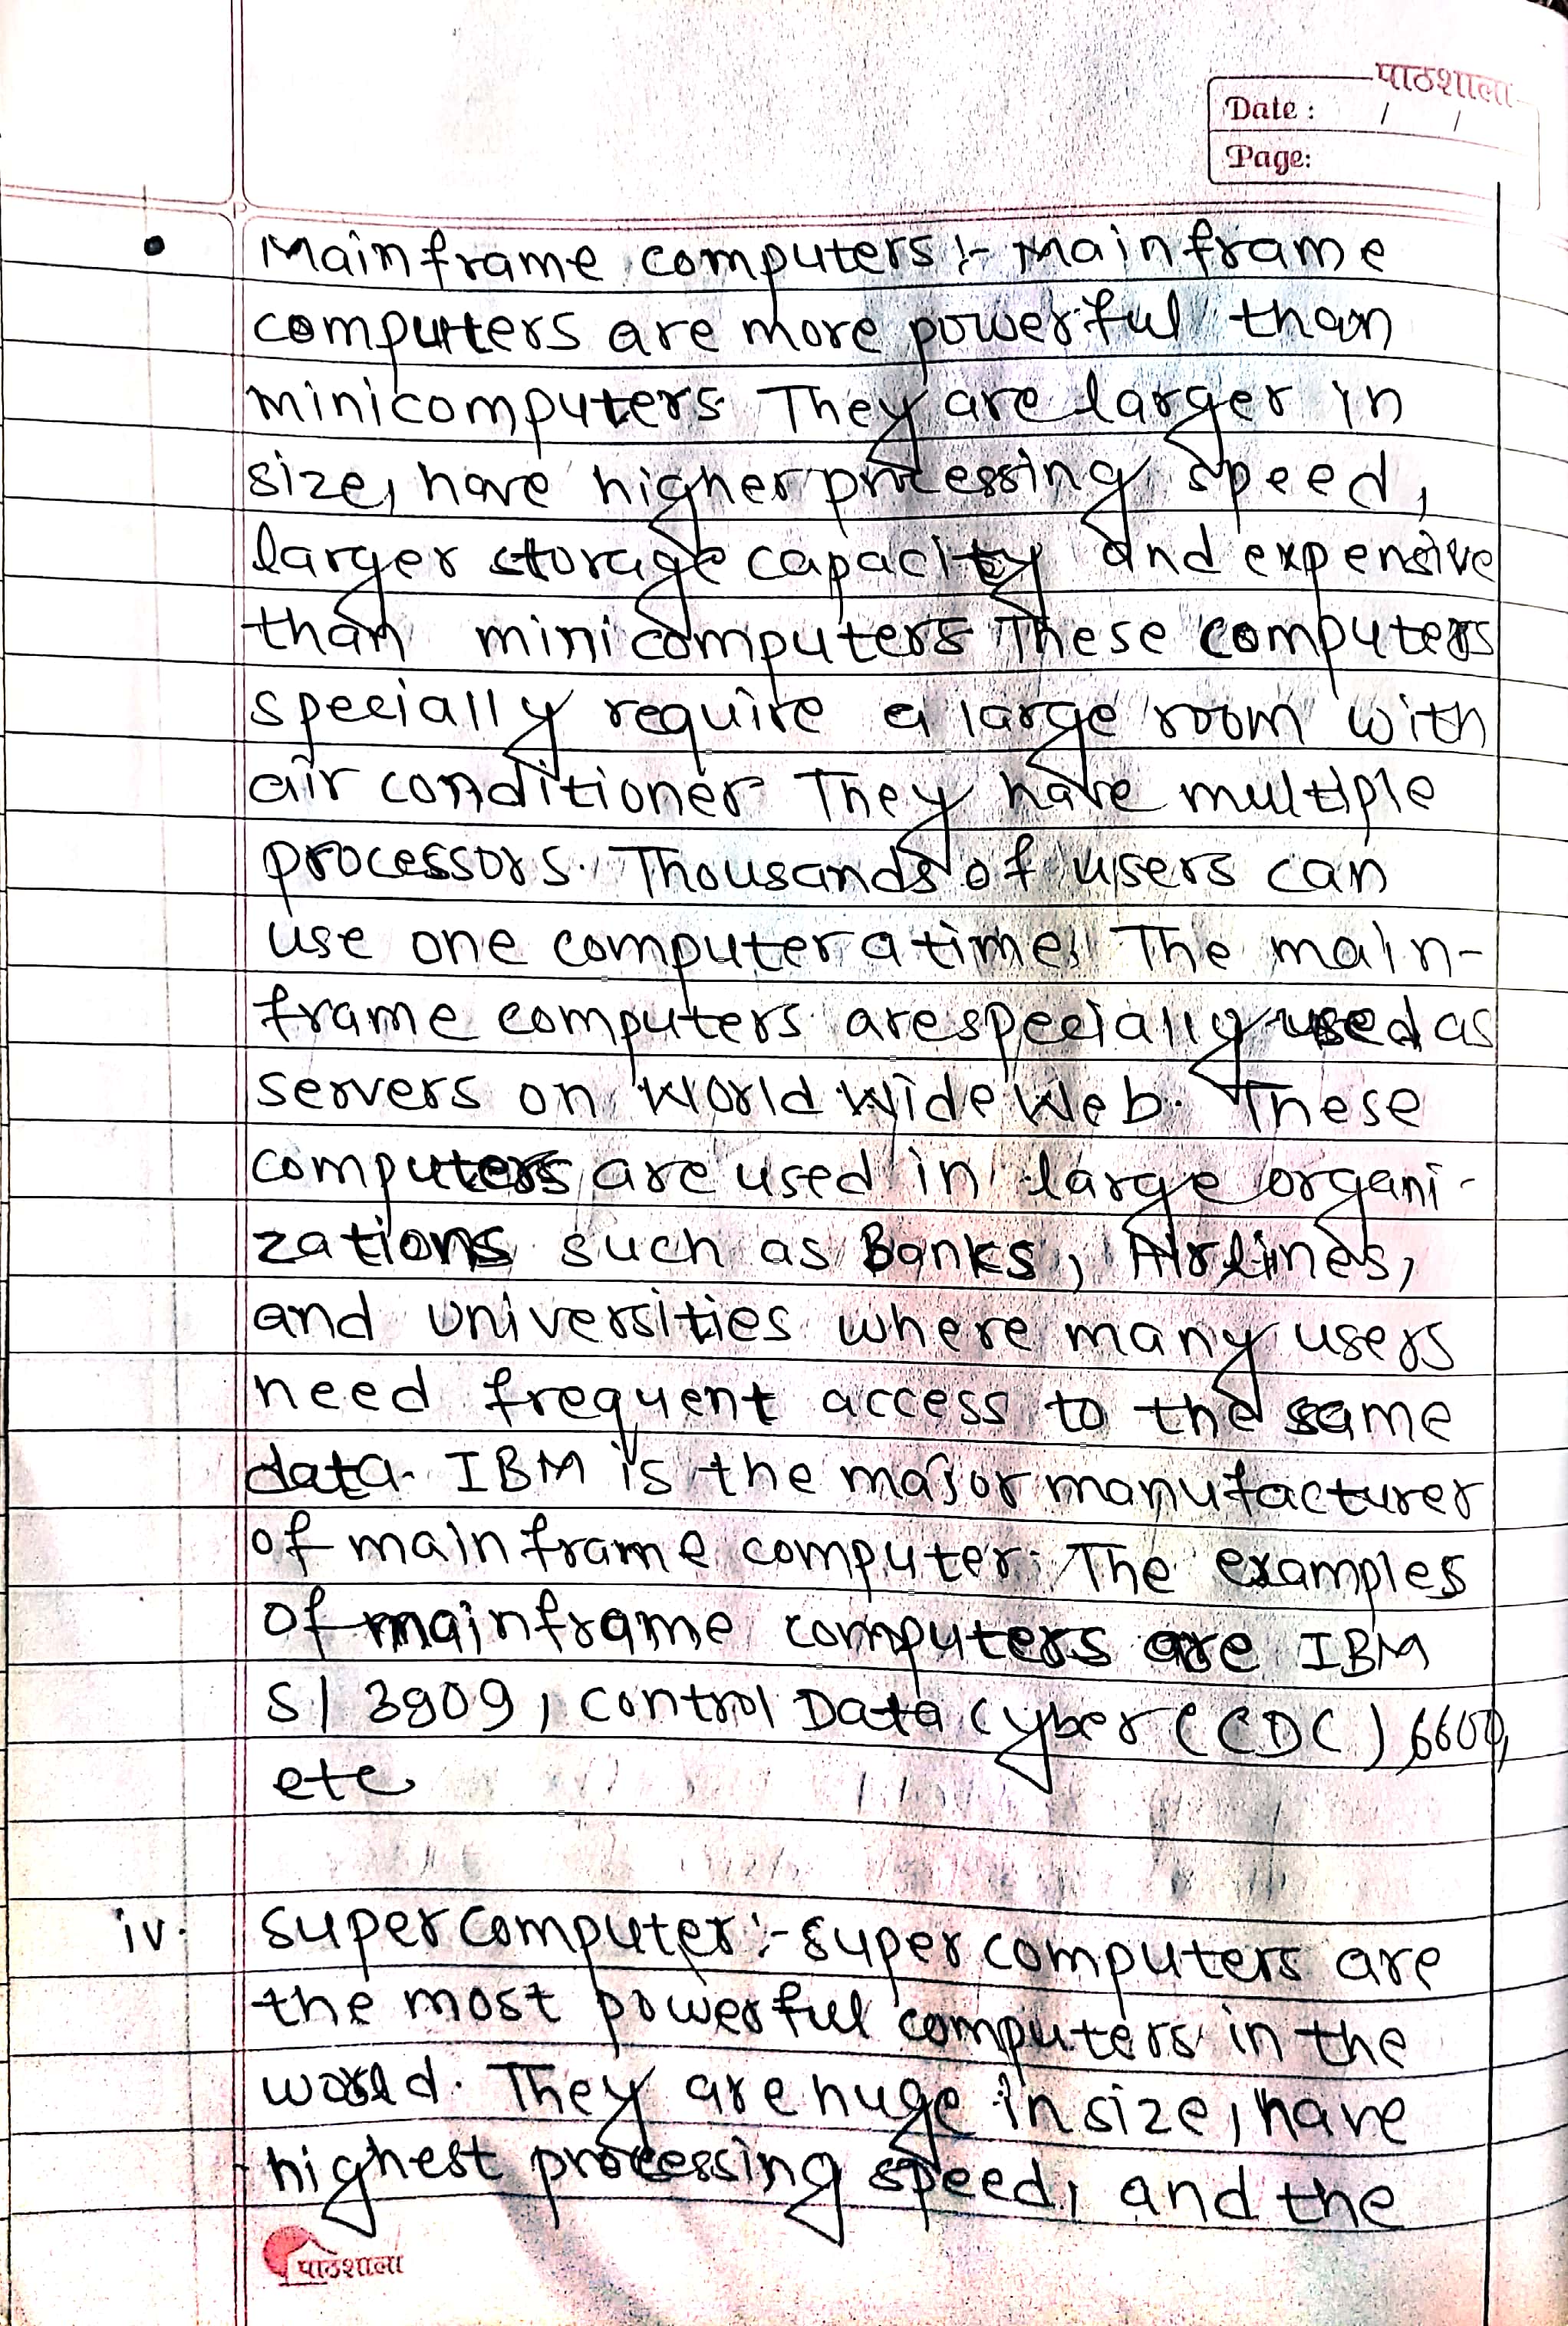 पाठशाला
Date : / /
Page:
• Mainframe computers :- Mainframe
computers are more powerful than
minicomputers. They are larger in
size, have higher processing speed,
larger storage capacity and expensive
than minicomputers These computers
specially require a large room with
air conditioner They have multiple
processors. Thousands of users can
use one computer a time. The main-
frame computers are specially used as
servers on World Wide Web. These
computers are used in large organi-
zations such as Banks, Airlines,
and universities where many users
need frequent access to the same
data. IBM is the major manufacturer
of mainframe computer. The examples
of mainframe computers are IBM
S/ 3909, Control Data Cyber (CDC) 6600,
etc
iv. supercomputer :- supercomputers are
the most powerful computers in the
world. They are huge in size, have
highest processing speed, and the
पाठशाला